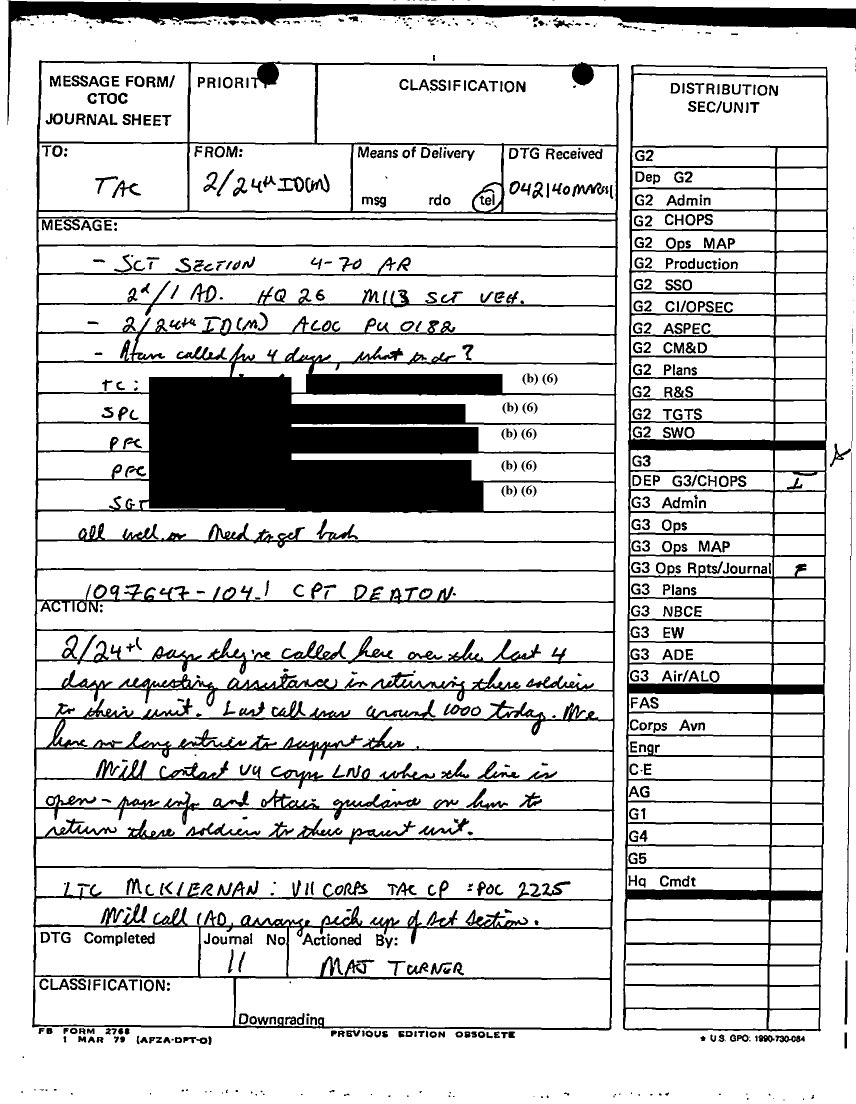 MESSAGE FORM/
CTOC
JOURNAL SHEET
PRIORITY
CLASSIFICATION
TO:
TAC
FROM:
2/24th ID(M)
Means of Delivery
msg rdo tel
DTG Received
042140MAR91
MESSAGE:
- SCT SECTION 4-70 AR
2d/1 AD. HQ 26 M113 SCT VEH.
- 2/24th ID(M) ALOC PU 0182
- Have called for 4 days, what to do?
TC: (b) (6)
SPC (b) (6)
PFC (b) (6)
PFC (b) (6)
SGT (b) (6)
all well. Need to get back
1097647-104-1 CPT DEATON.
ACTION:
2/24th says they've called here over the last 4
days requesting assistance in returning these soldiers
to their unit. Last call was around 1000 today. We
have no long entries to support this.
Will contact VII Corps LNO when the line is
open - pass info and obtain guidance on how to
return these soldiers to their parent unit.
LTC MCKIERNAN: VII CORPS TAC CP : POC 2225
Will call 1AD, arrange pick up of sct section.
DTG Completed
Journal No.
11
Actioned By:
MAJ TURNER
CLASSIFICATION:
Downgrading
FB FORM 2768
1 MAR 79 (AFZA-DPT-O)
PREVIOUS EDITION OBSOLETE
DISTRIBUTION
SEC/UNIT
G2
Dep G2
G2 Admin
G2 CHOPS
G2 Ops MAP
G2 Production
G2 SSO
G2 CI/OPSEC
G2 ASPEC
G2 CM&D
G2 Plans
G2 R&S
G2 TGTS
G2 SWO
G3
DEP G3/CHOPS I
G3 Admin
G3 Ops
G3 Ops MAP
G3 Ops Rpts/Journal F
G3 Plans
G3 NBCE
G3 EW
G3 ADE
G3 Air/ALO
FAS
Corps Avn
Engr
C-E
AG
G1
G4
G5
Hq Cmdt
* U.S. GPO: 1990-730-084